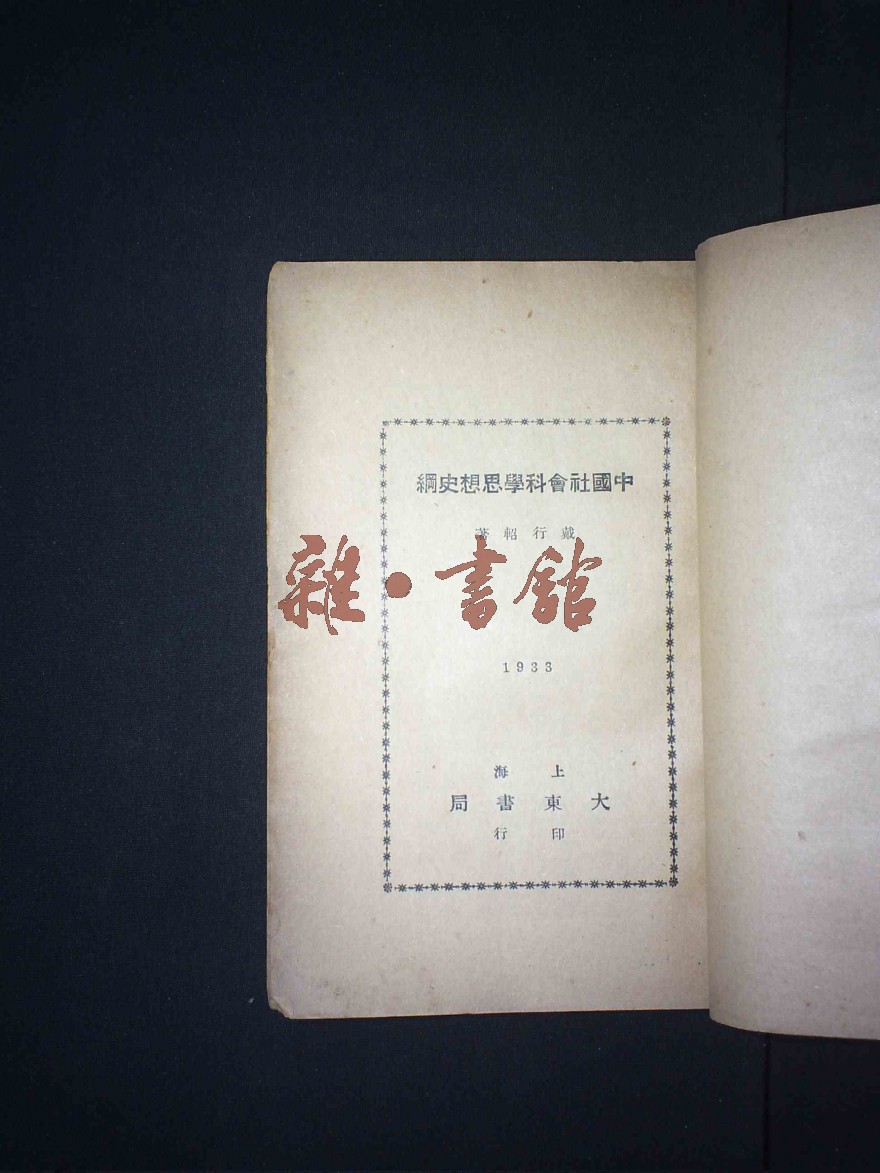 中國社會科學思想史綱
戴行軺著
雜·書館
1933
上海
大東書局
印行